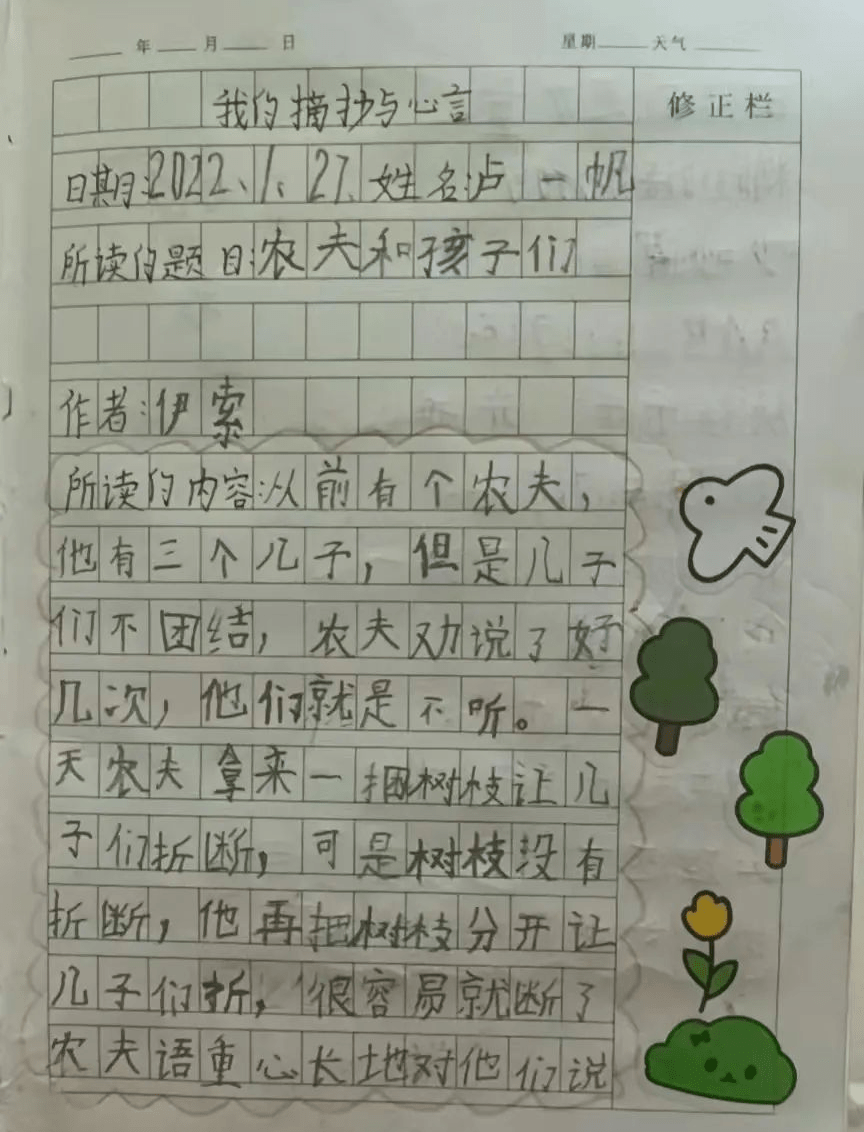 年 月 日 星期 天气
我的摘抄与心言
修正栏
日期:2022、1、27、姓名:卢一帆
所读的题目:农夫和孩子们
作者:伊索
所读的内容:从前有个农夫,
他有三个儿子,但是儿子
们不团结,农夫劝说了好
几次,他们就是不听。一
天农夫拿来一捆树枝让儿
子们折断,可是树枝没有
折断,他再把树枝分开让
儿子们折,很容易就断了
农夫语重心长地对他们说